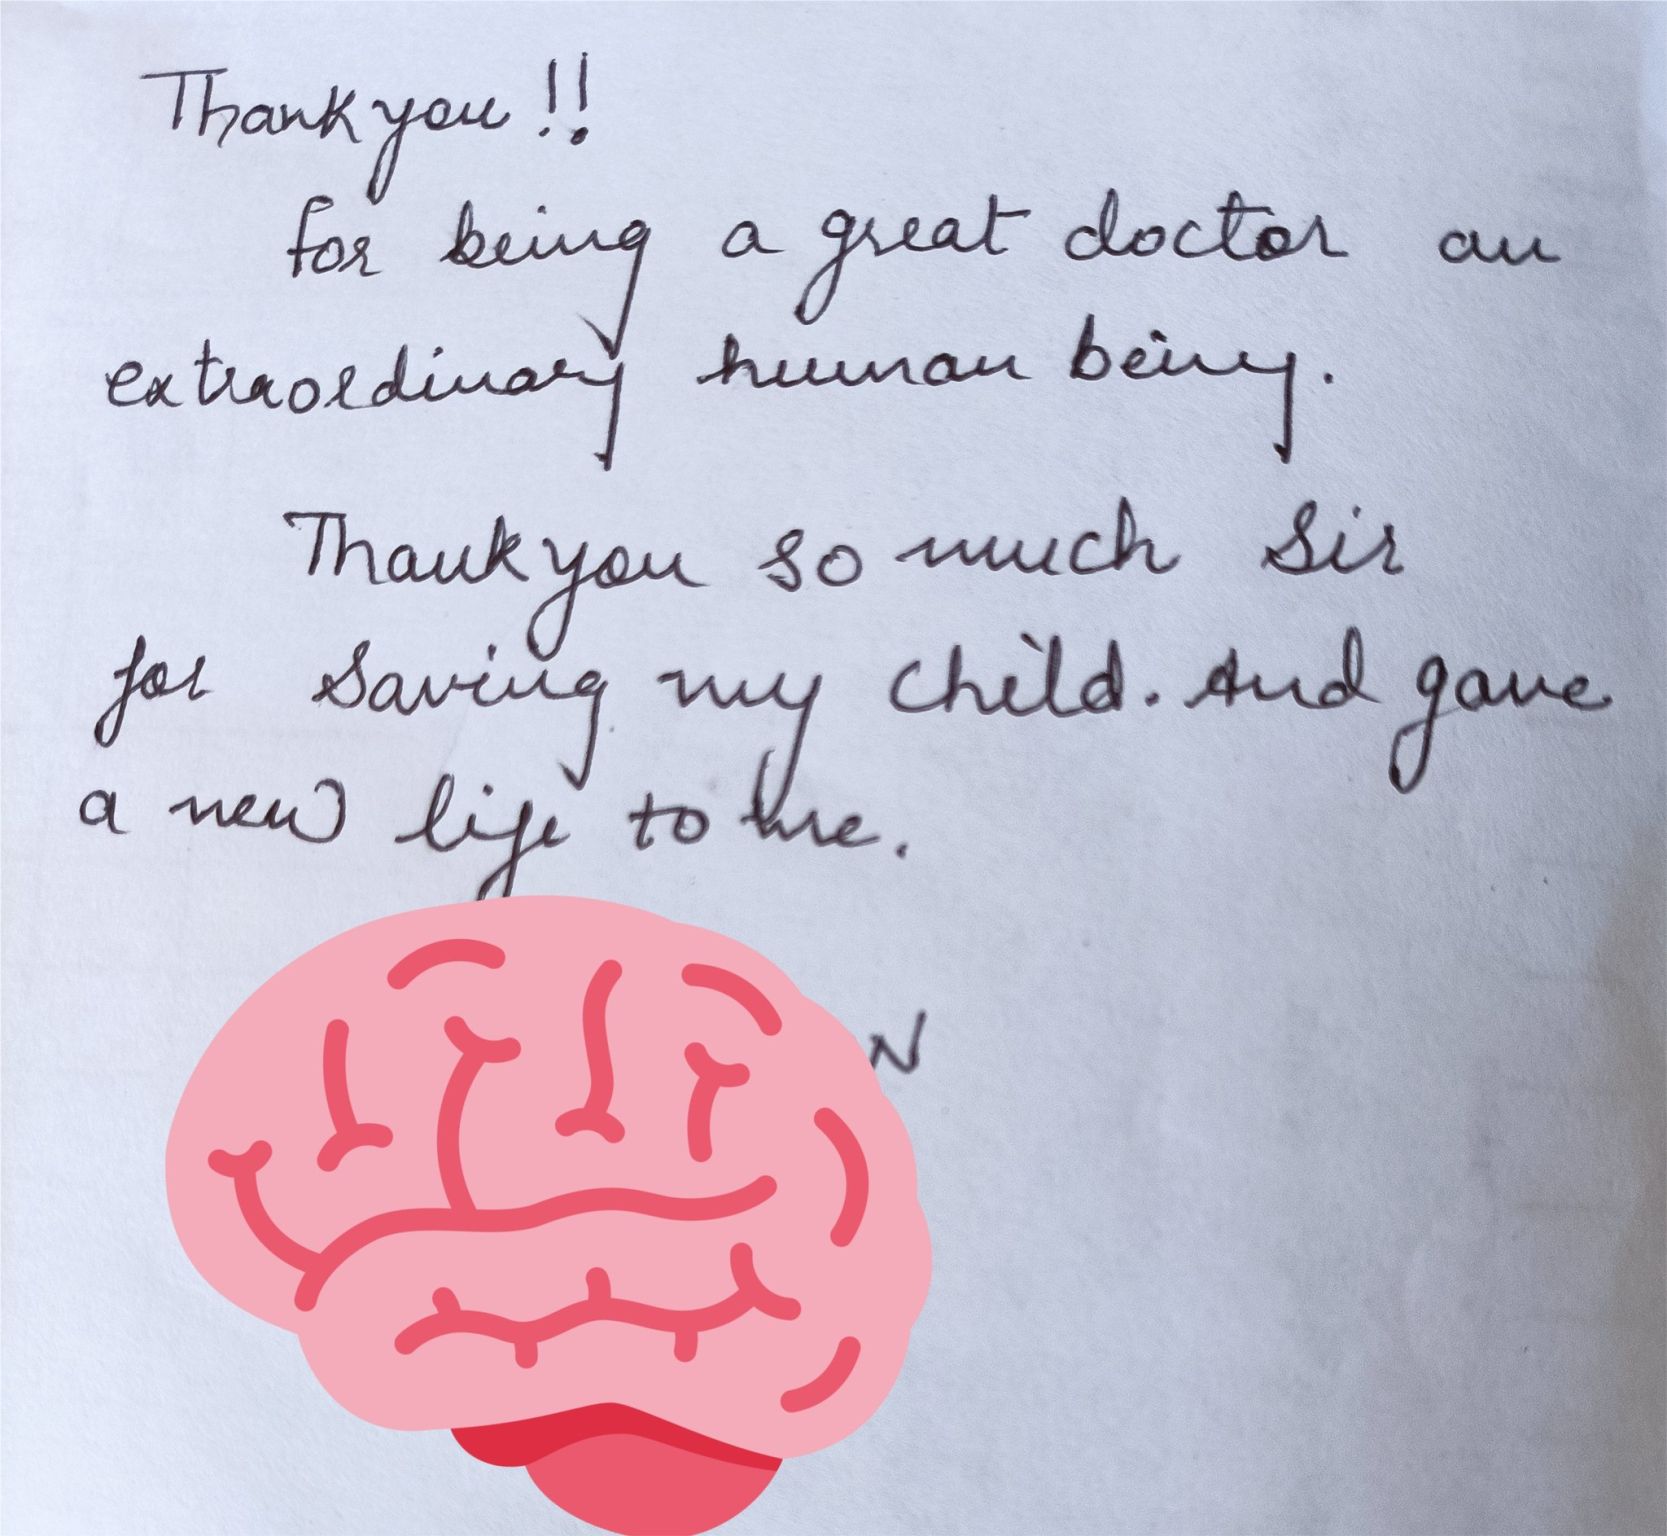 Thank you !!
for being a great doctor an
extraordinary human being.
Thank you so much Sir
for saving my child. And gave
a new life to me.
N